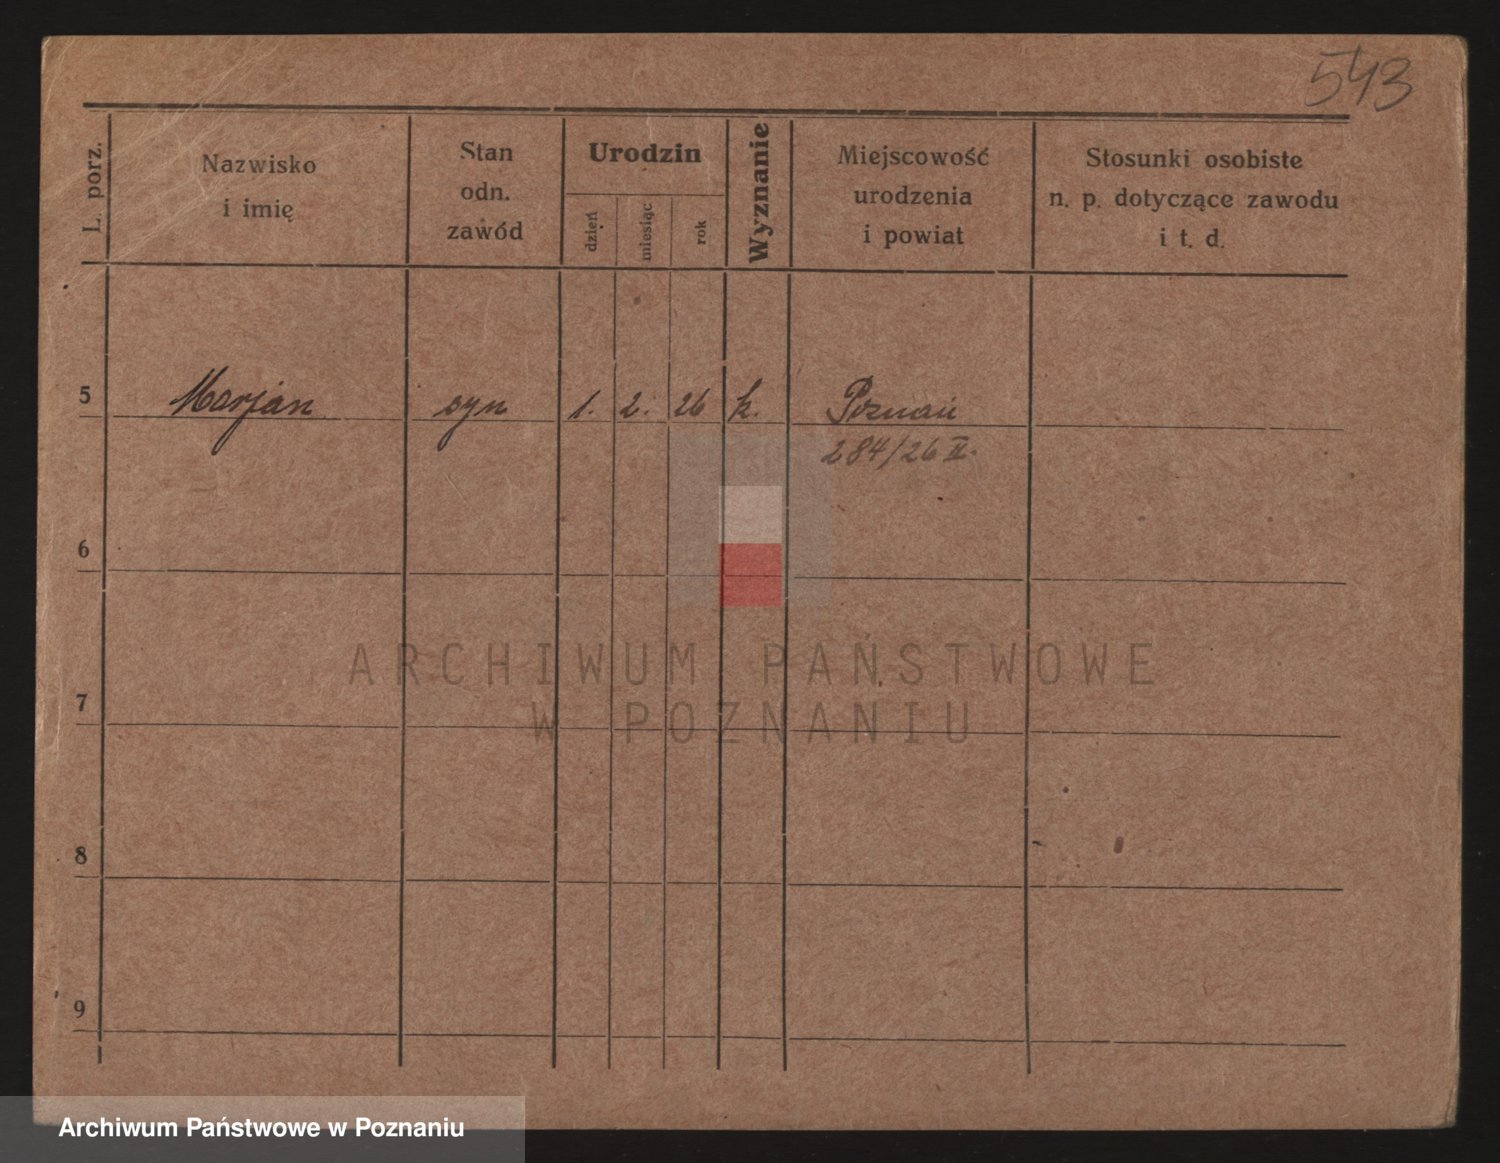 543
L. porz.
Nazwisko
i imię
Stan
odn.
zawód
Urodzin
dzień
miesiąc
rok
Wyznanie
Miejscowość
urodzenia
i powiat
Stosunki osobiste
n. p. dotyczące zawodu
i t. d.
5 Marjan syn 1. 2. 26 k. Poznań
284/26 II.
6
7
8
9
ARCHIWUM PAŃSTWOWE
W POZNANIU
Archiwum Państwowe w Poznaniu